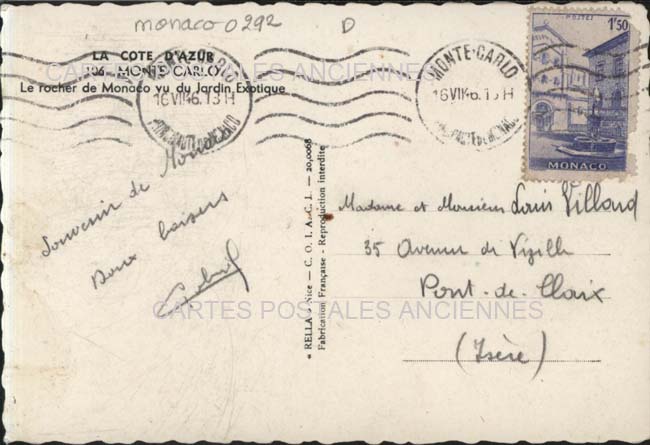 monaco 0292 D
LA COTE D'AZUR
106 - MONTE-CARLO
Le rocher de Monaco vu du Jardin Exotique
CARTES POSTALES ANCIENNES
MONTE-CARLO
16 VII 46. 13 H
POSTES
1F50
MONACO
Souvenir de Monaco
Doux baisers
RELLA - Nice - C. O. I. A. C. L. - 20,0068
Fabrication Française - Reproduction interdite
Madame et Monsieur Louis Villard
35 Avenue de Vizille
Pont-de-Claix
(Isère)
CARTES POSTALES ANCIENNES